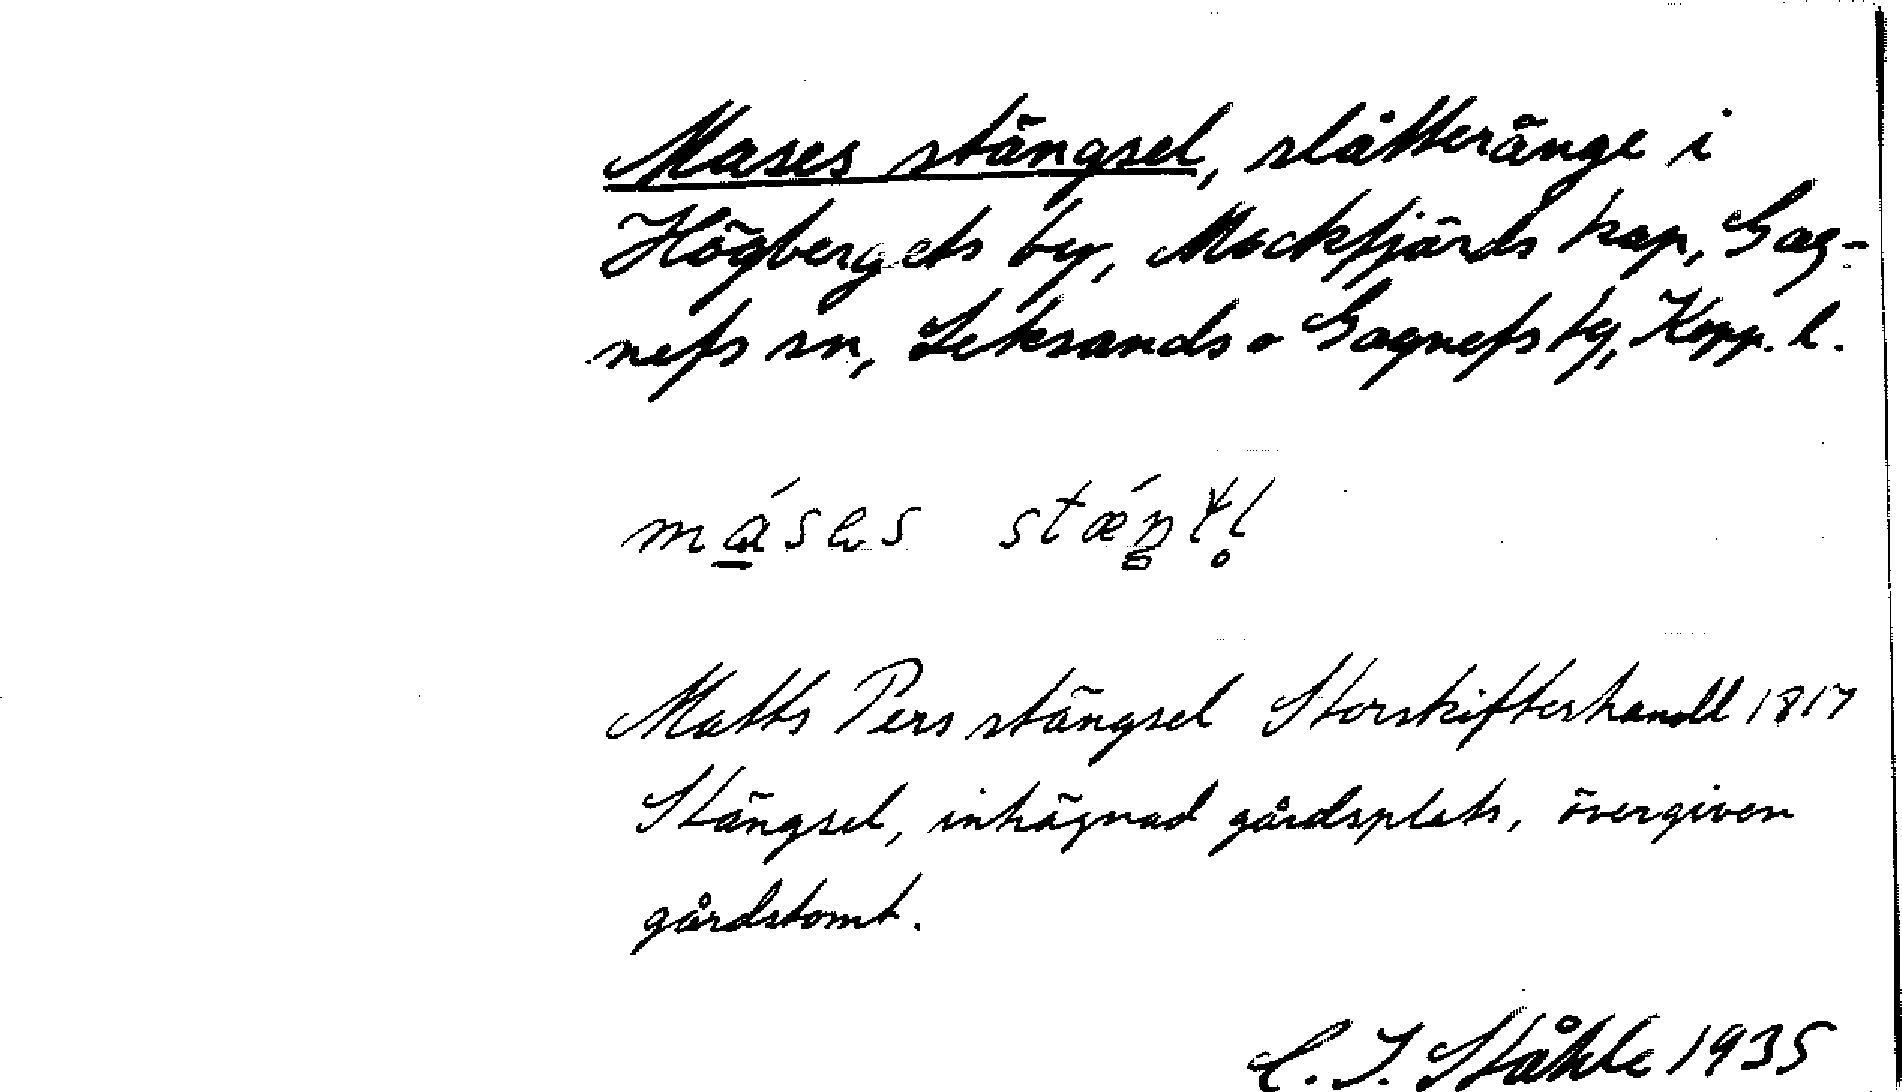 Mases stängsel, slåtteränge i
Högbergets by, Mockfjärds kap, Gag-
nefs sn, Leksands o Gagnefs tg, Kopp. l.
máses
Matts Pers stängsel Storskifteshandl 1817
Stängsel, inhägnad gårdsplats, övergiven
gårdstomt.
C. I. Ståhle 1935